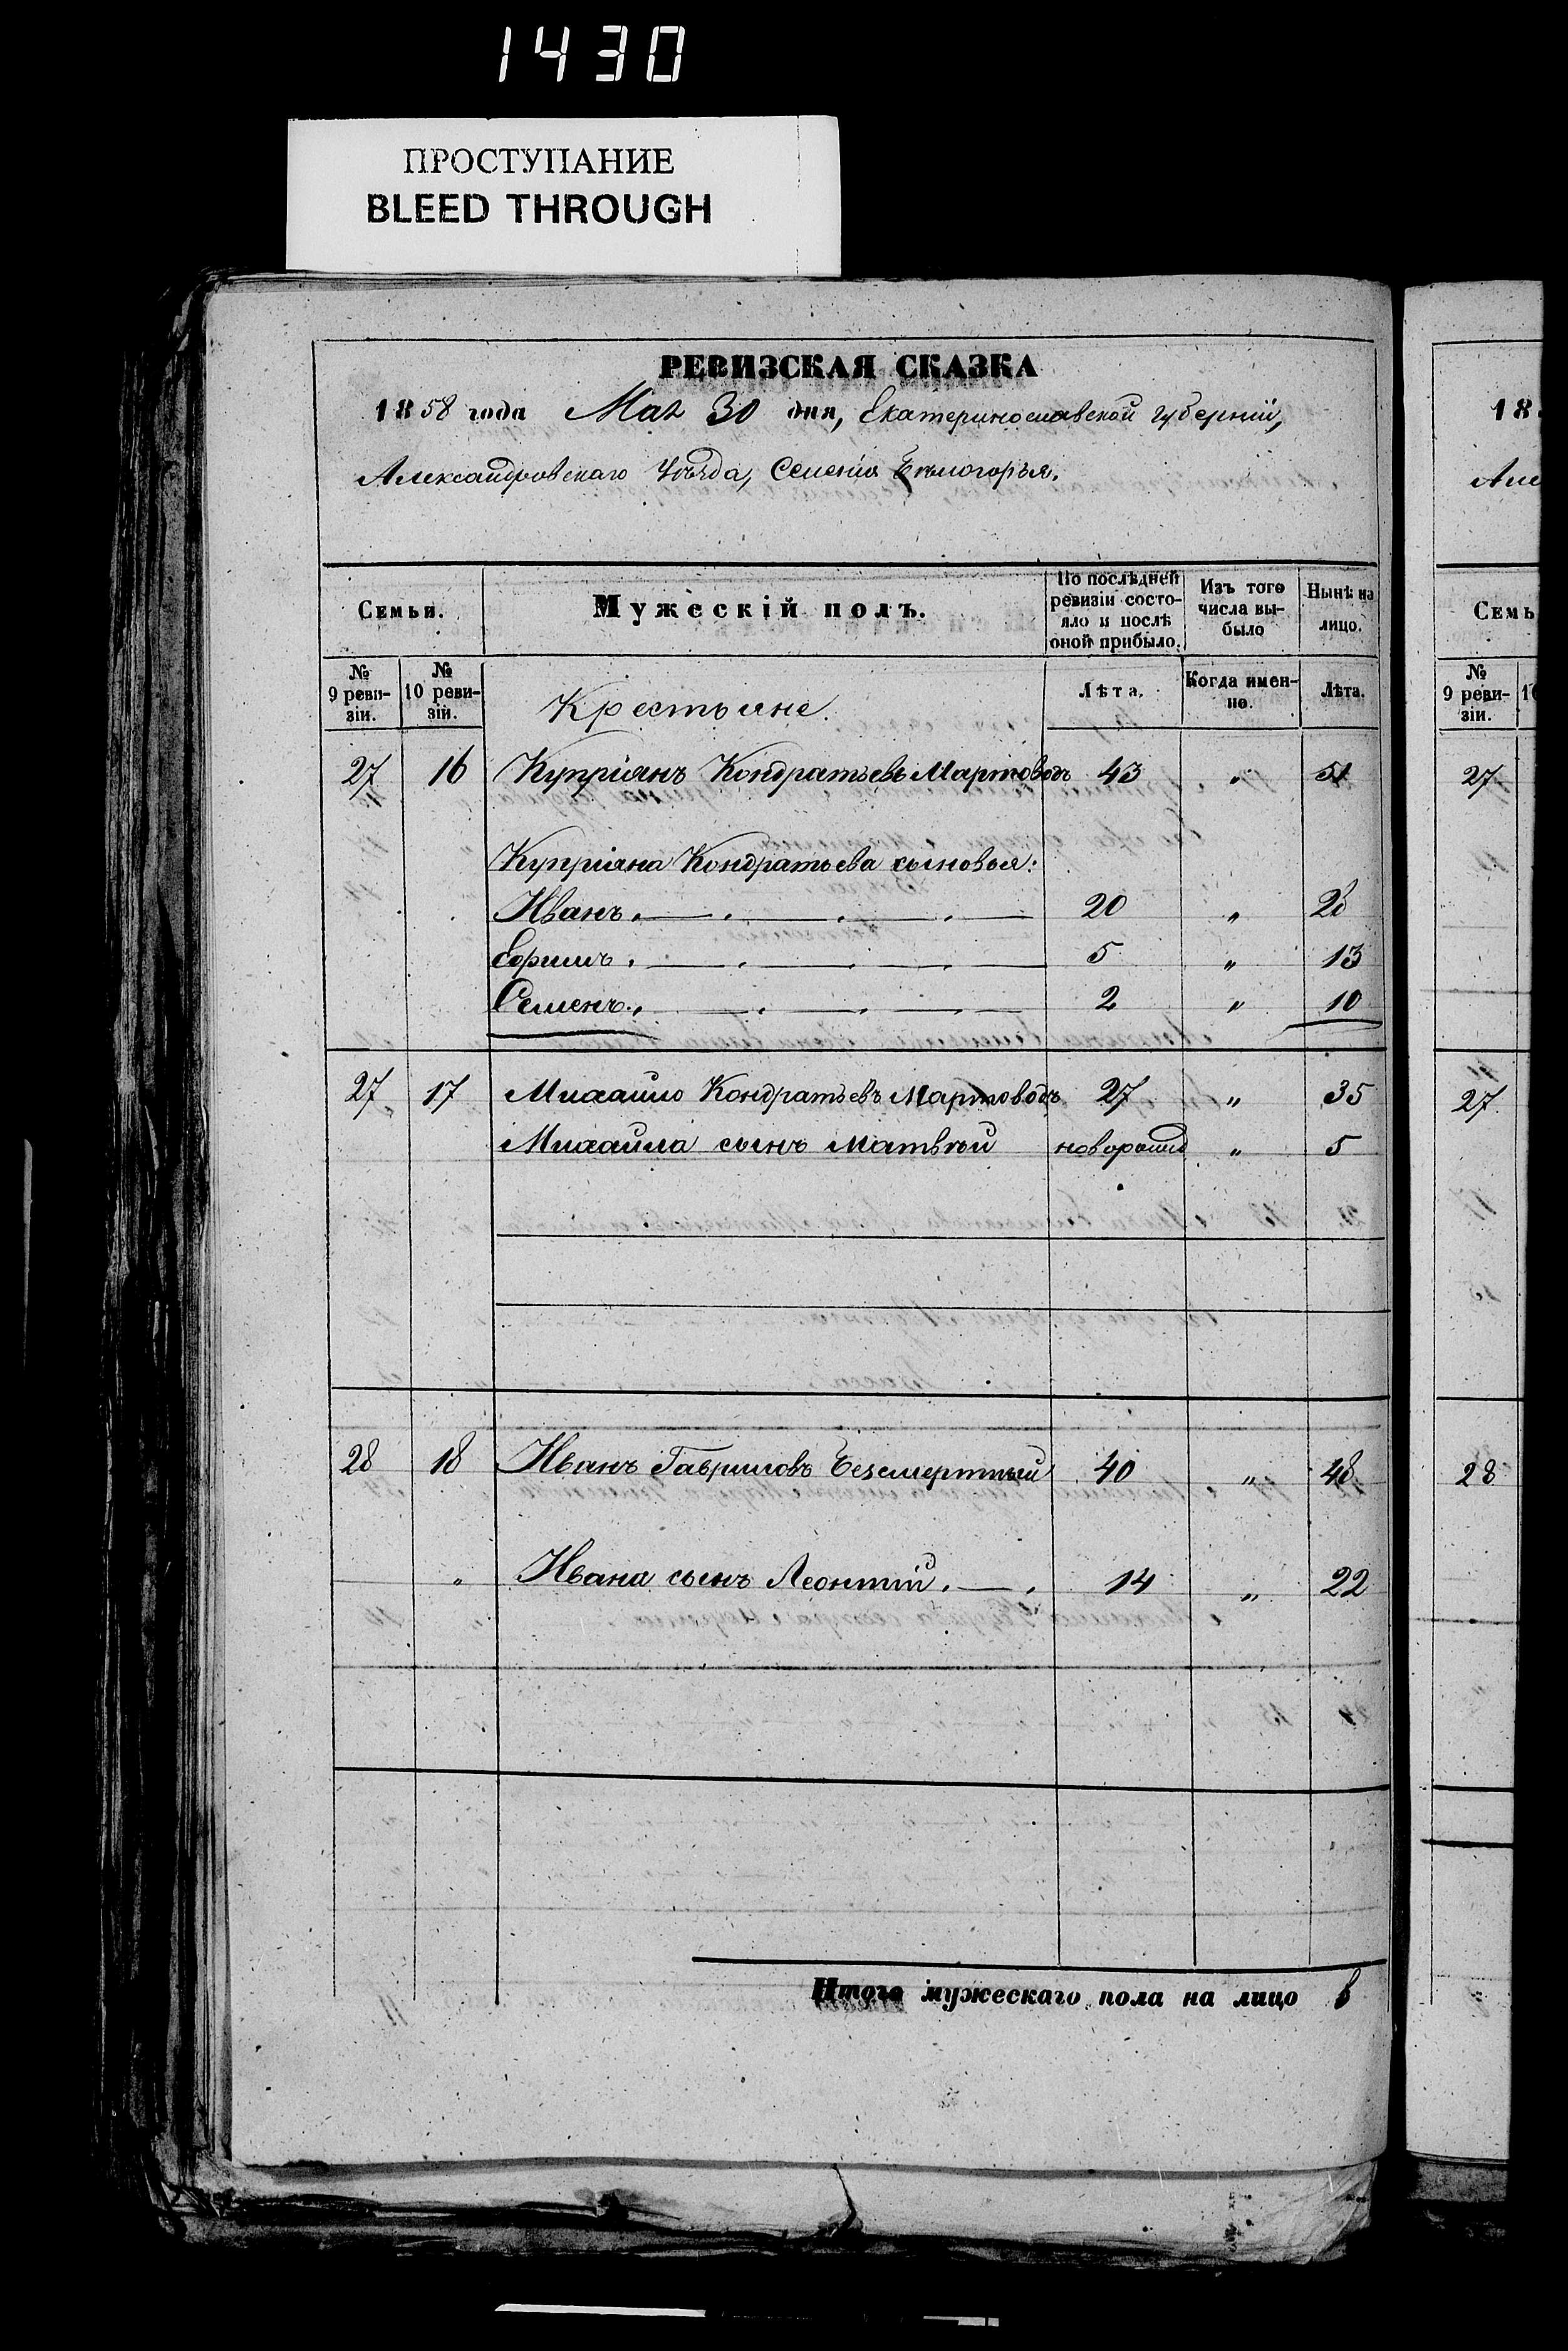 1430
ПРОСТУПАНИЕ
BLEED THROUGH
РЕВИЗСКАЯ СКАЗКА
1858 года Мая 30 дня, Екатеринославской губерніи,
Александровскаго Уѣзда, Селенія Бѣлогорья.
Семьи. Мужескій полъ. По послѣдней ревизіи состояло и послѣ оной прибыло. Изъ того числа выбыло Нынѣ на лицо.
№ 9 ревизіи. № 10 ревизіи. Крестьяне. Лѣта. Когда именно. Лѣта.
27 16 Купріянъ Кондратьевъ Мартоводъ 43 „ 51
Купріяна Кондратьева сыновья:
Иванъ 20 „ 28
Ефимъ 5 „ 13
Семенъ 2 „ 10
27 17 Михайло Кондратьевъ Мартоводъ 27 „ 35
Михайла сынъ Матвѣй новорожд „ 5
28 18 Иванъ Гавриловъ Безсмертный 40 „ 48
„ Ивана сынъ Леонтій 14 „ 22
Итого мужескаго пола на лицо
18
Але
Семь
№ 9 ревизіи.
27
27
28